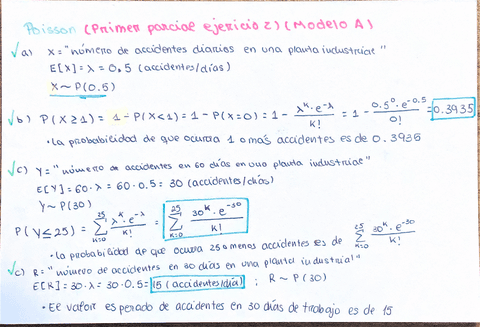 Poisson (Primer parcial ejericio 2) (Modelo A)
√a) X = "número de accidentes diarios en una planta industriae"
E[X] = λ = 0.5 (accidentes/días)
X ~ P(0.5)
√b) P(X≥1) = 1 - P(X<1) = 1 - P(X=0) = 1 - λ^k · e^-λ / k! = 1 - 0.5^0 · e^-0.5 / 0! = 0.3935
· La probabilidad de que ocurra 1 o más accidentes es de 0.3935
√c) Y = "número de accidentes en 60 días en una planta industriae"
E[Y] = 60 · λ = 60 · 0.5 = 30 (accidentes/días)
Y ~ P(30)
P(Y≤25) = Σ_{k=0}^{25} λ^k · e^-λ / k! = Σ_{k=0}^{25} 30^k · e^-30 / k!
· La probabilidad de que ocurra 25 o menos accidentes es de Σ_{k=0}^{25} 30^k · e^-30 / k!
√c) R = "número de accidentes en 30 días en una planta industrial"
E[R] = 30 · λ = 30 · 0.5 = 15 (accidentes/día) ; R ~ P(30)
· El valor esperado de accidentes en 30 días de trabajo es de 15